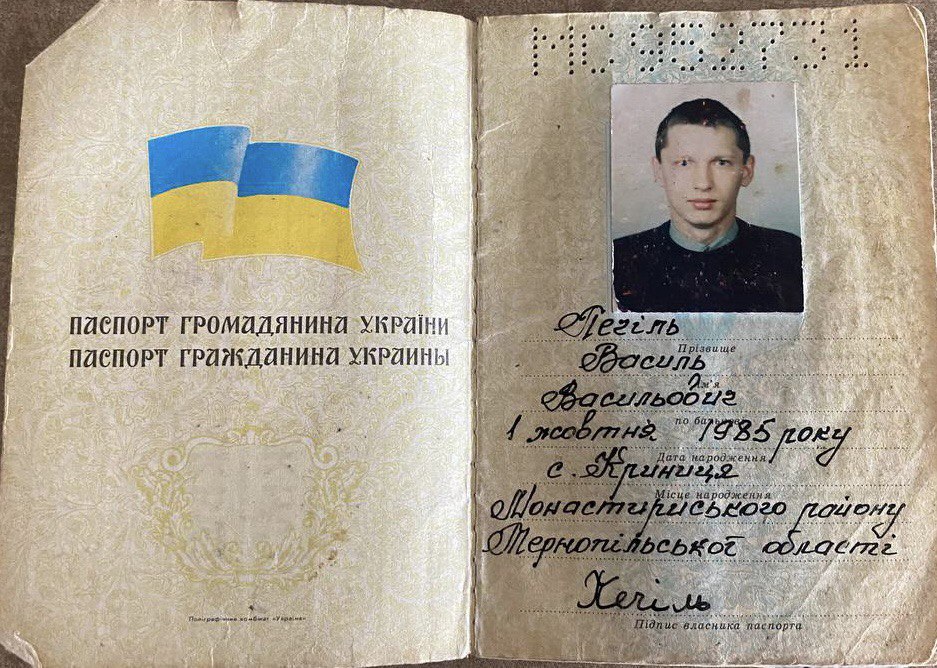 ПАСПОРТ ГРОМАДЯНИНА УКРАЇНИ
ПАСПОРТ ГРАЖДАНИНА УКРАИНЫ
Поліграфічний комбінат «Україна»
МС952731
Печіль
Прізвище
Василь
Ім'я
Васильович
по батькові
1 жовтня 1985 року
Дата народження
с. Криниця
Місце народження
Монастириського району
Тернопільської області
Підпис власника паспорта